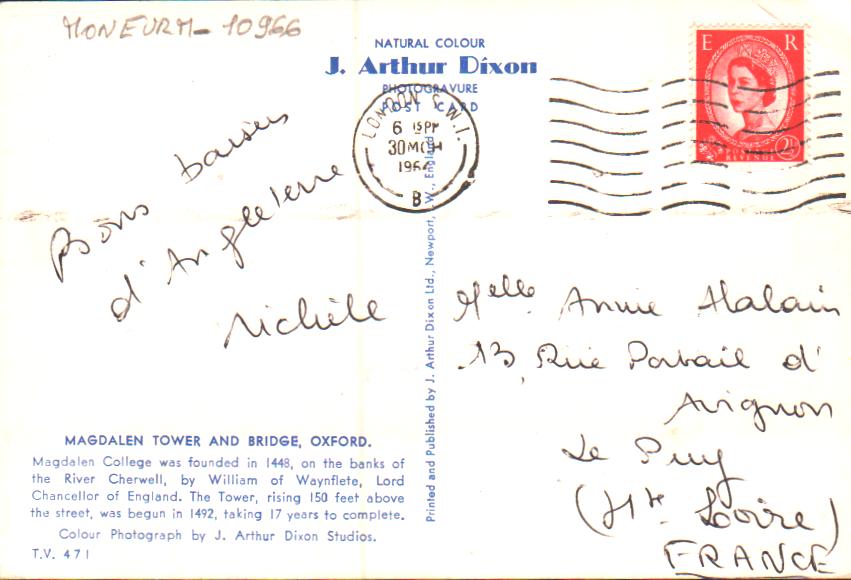 MONEURM- 10966
NATURAL COLOUR
J. Arthur Dixon
PHOTOGRAVURE
POST CARD
LONDON S.W.1.
6 15PM
30 MCH
196
B
E R
POSTAGE
REVENUE
2½
Bons baisers
d'Angleterre
Michèle
Melle Annie Alalain
13, Rue Portail d'
Avignon
Le Puy
(Hte Loire)
FRANCE
MAGDALEN TOWER AND BRIDGE, OXFORD.
Magdalen College was founded in 1448, on the banks of
the River Cherwell, by William of Waynflete, Lord
Chancellor of England. The Tower, rising 150 feet above
the street, was begun in 1492, taking 17 years to complete.
Colour Photograph by J. Arthur Dixon Studios.
T.V. 471
Printed and Published by J. Arthur Dixon Ltd., Newport, I.W., England